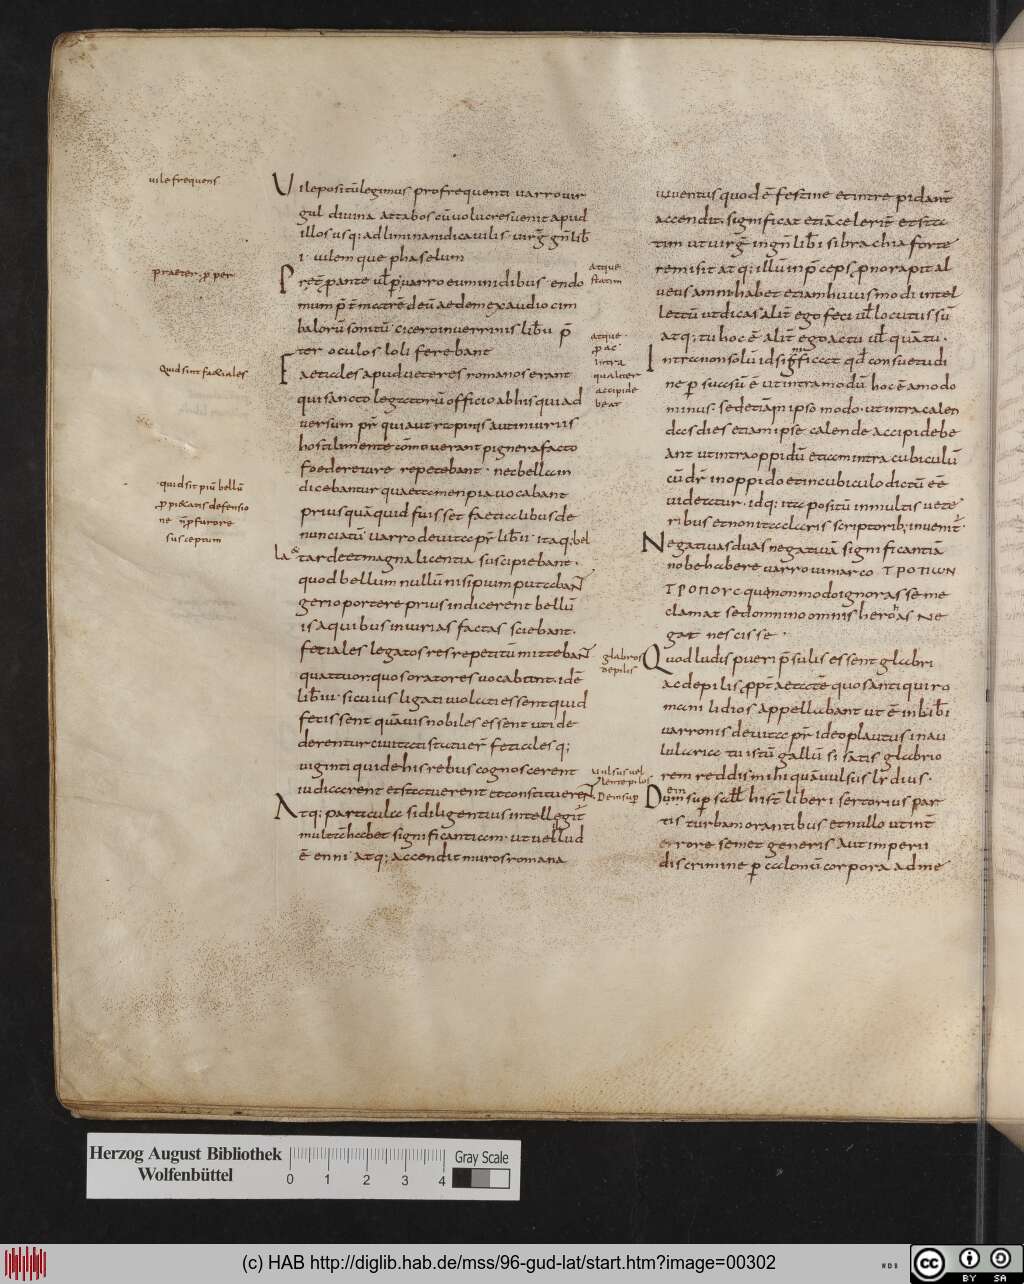 uile frequens
Uile positū legimus pro frequenti uarro uir
gul diuina at tabos cū uolucres uenit apud
illos usq; ad limina nidica uilis · uirg̅ gn̅ lib̅
i · uilem que phaselum
praeter · ꝓ per
Pret̅ꝑante ut̅ ꝑ uarro eumenidibus · endo
mum p̅ t̅ matrē deū aedem exaudio cim
balorū sonitū · cicero inuerrinis lib̅ u p̅
ter oculos loli ferebant
Quid sint faetiales
Faetiales apud ueteres romanos erant
qui sancto legatorū officio ab his qui ad
uersum p̅r̅ qui aut rapinis aut iniuriis
hostili mente cōmouerant pignera facto
foedere iure repetebant · nec bella in
dicebantur quae tamen pia uocabant
quid sit piū bellū
ꝓ pietatis defensio
ne n̅ ꝓ furore
susceptum
priusquā quid fuisset faetialibus de
nunciatū uarro de uita p̅r̅ lib̅ ii · itaq; bel
la et tarde et magna licentia suscipiebant ·
quod bellum nullū nisi pium putabant
geri oportere priusindicerent bellū
is a quibus iniurias factas sciebant ·
fetiales legatos res repetitū mittebant
quattuor · quos oratores uocabant · idē
lib̅ iii · si cuius ligati uiolati essent quid
fecissent quāuis nobiles essent uti de
derentur ciuitati statuer̅ fetiales q;
uiginti qui de his rebus cognoscerent
iudicarent et statuerent et constituerent
Atq; particula si diligentius intellegit̅
multā habet significantiam · ut uel lud
ē enni · atq; accendit muros romana
iuuentus quod ē festine et intrepidant̅
accendit · significat etiā celerit̅ et sta
tim ut uirg̅ in gn̅ lib̅ i si brachia forte
atque
statim
remisit atq; illū in p̅ceps ꝓno rapit al
ueus amni habet etiam huiusmodi intel
lectū ut dicas alit̅ ego feci ut̅ locutus sū
atque ·
ꝓ ac ·
intra
qualiter
accipide
beat
atq; tu hoc ē alit̅ ego ac tu ut̅ quā tu ·
Intra non solū id significat qd̅ consuetudi
ne ꝑ suasū ē ut intra modū hoc ē a modo
minus · sed etiā in ipso modo · ut intra calen
das dies etiam ipse calende accipi debe
ant ut intra oppidū etiam intra cubiculū
cū dr̅ in oppido et in cubiculo dictū eē
uidetatur · idq; ita positū in multis uete
ribus et non ita claris scriptorib; inuenit̅ ·
Negatiuas duas negatiuā significantiā
nob ehabere uarro uimarco ΤΡΟΠΩΝ
ΤΡΟΠΟΥC quē non modo ignoras se me
clamat sed omnino omnis heroas Ne
gat nescisse ·
glabros
depiles
Quod ludis pueri p̅sulis essent glabri
ac depilis ꝓpt̅ aetatē quos anti qui ro
mani lidios appellabant ut ē in bibi
uarronis de uita p̅r̅ ideo plautus in au
lularia tu istū gallū si satis glabrio
uulsus uel
lente pilos
rem reddis mihi quā uulsus lr̅ dius ·
Dem sup̅
Dum sup̅ sall̅ hist̅ liber i sertorius par
tis turbam orantibus et nullo ut int̅
errore semet generis aut imperii
discrimine ꝑ calonū corpora ad me
Herzog August Bibliothek
Wolfenbüttel
0 1 2 3 4
Gray Scale
(c) HAB http://diglib.hab.de/mss/96-gud-lat/start.htm?image=00302
WDB
cc BY SA